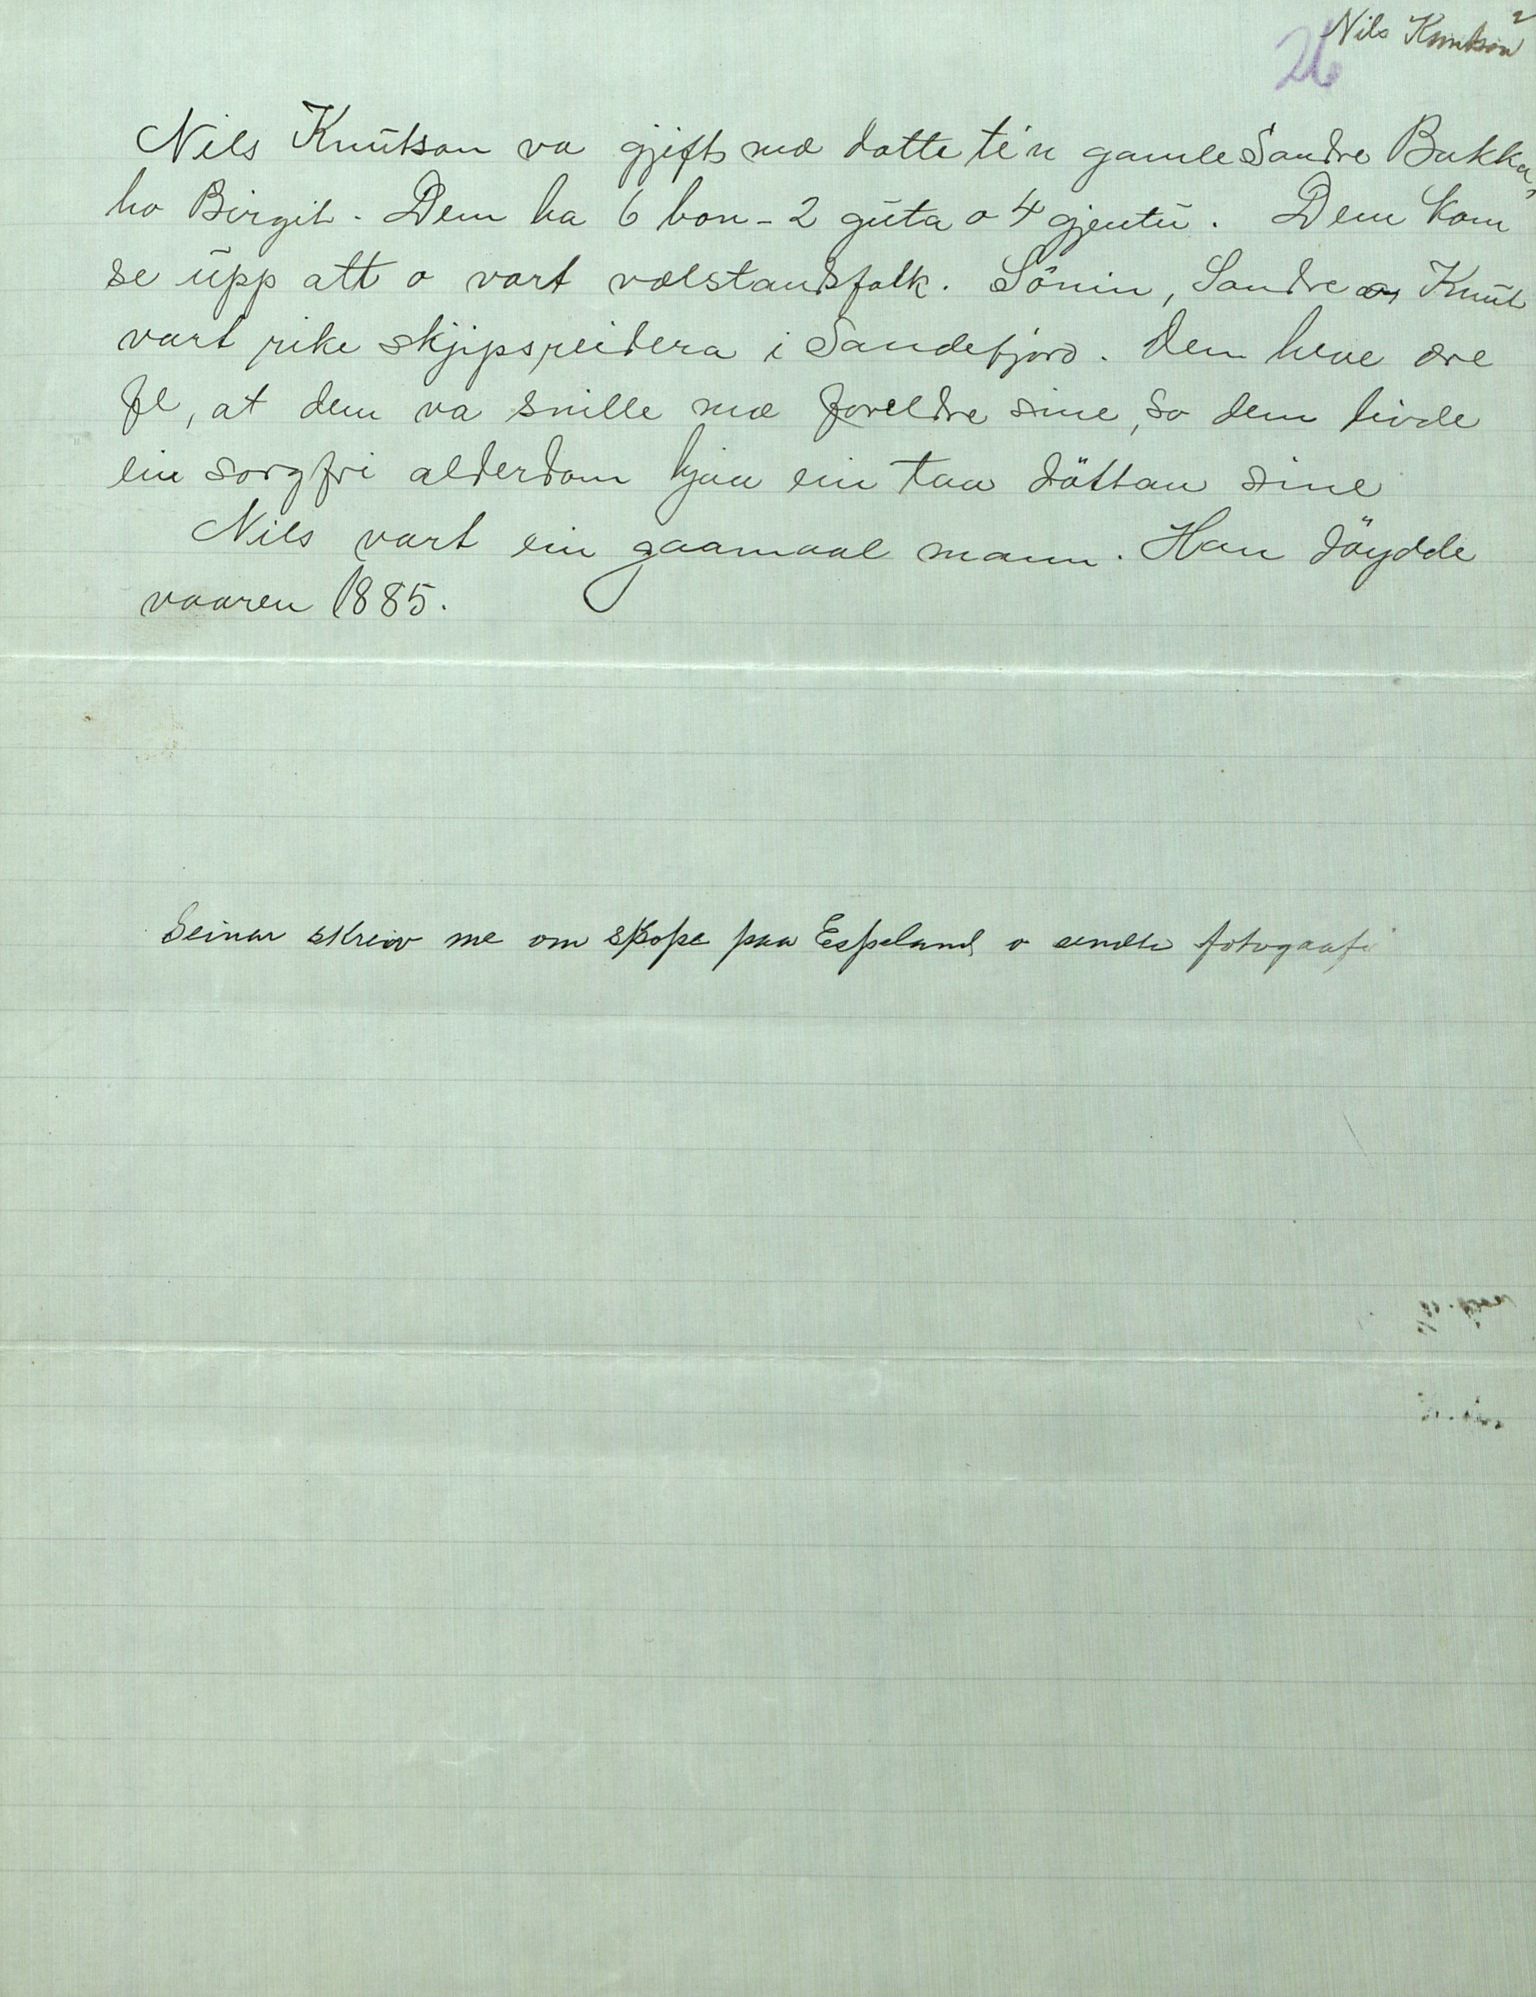 Nils Knutson 2
26
Nils Knutson va gjift mæ dotte te'n gamle Sandre Bakka,
ho Birgit. Dem ha 6 bon - 2 guta o 4 gjentu. Dem kom
se upp att o vart vælstandsfolk. Sönin, Sandre o Knut
vart rike skjipsreidera i Sandefjord. Dem heve ære
fe, at dem va snille mæ foreldre sine, so dem livde
ein sorgfri alderdom hjaa ein taa döttan sine
Nils vart ein gaamaal mann. Han döydde
vaaren 1885.
Seinar skreiv me om skope paa Espeland o sendte fotograafi